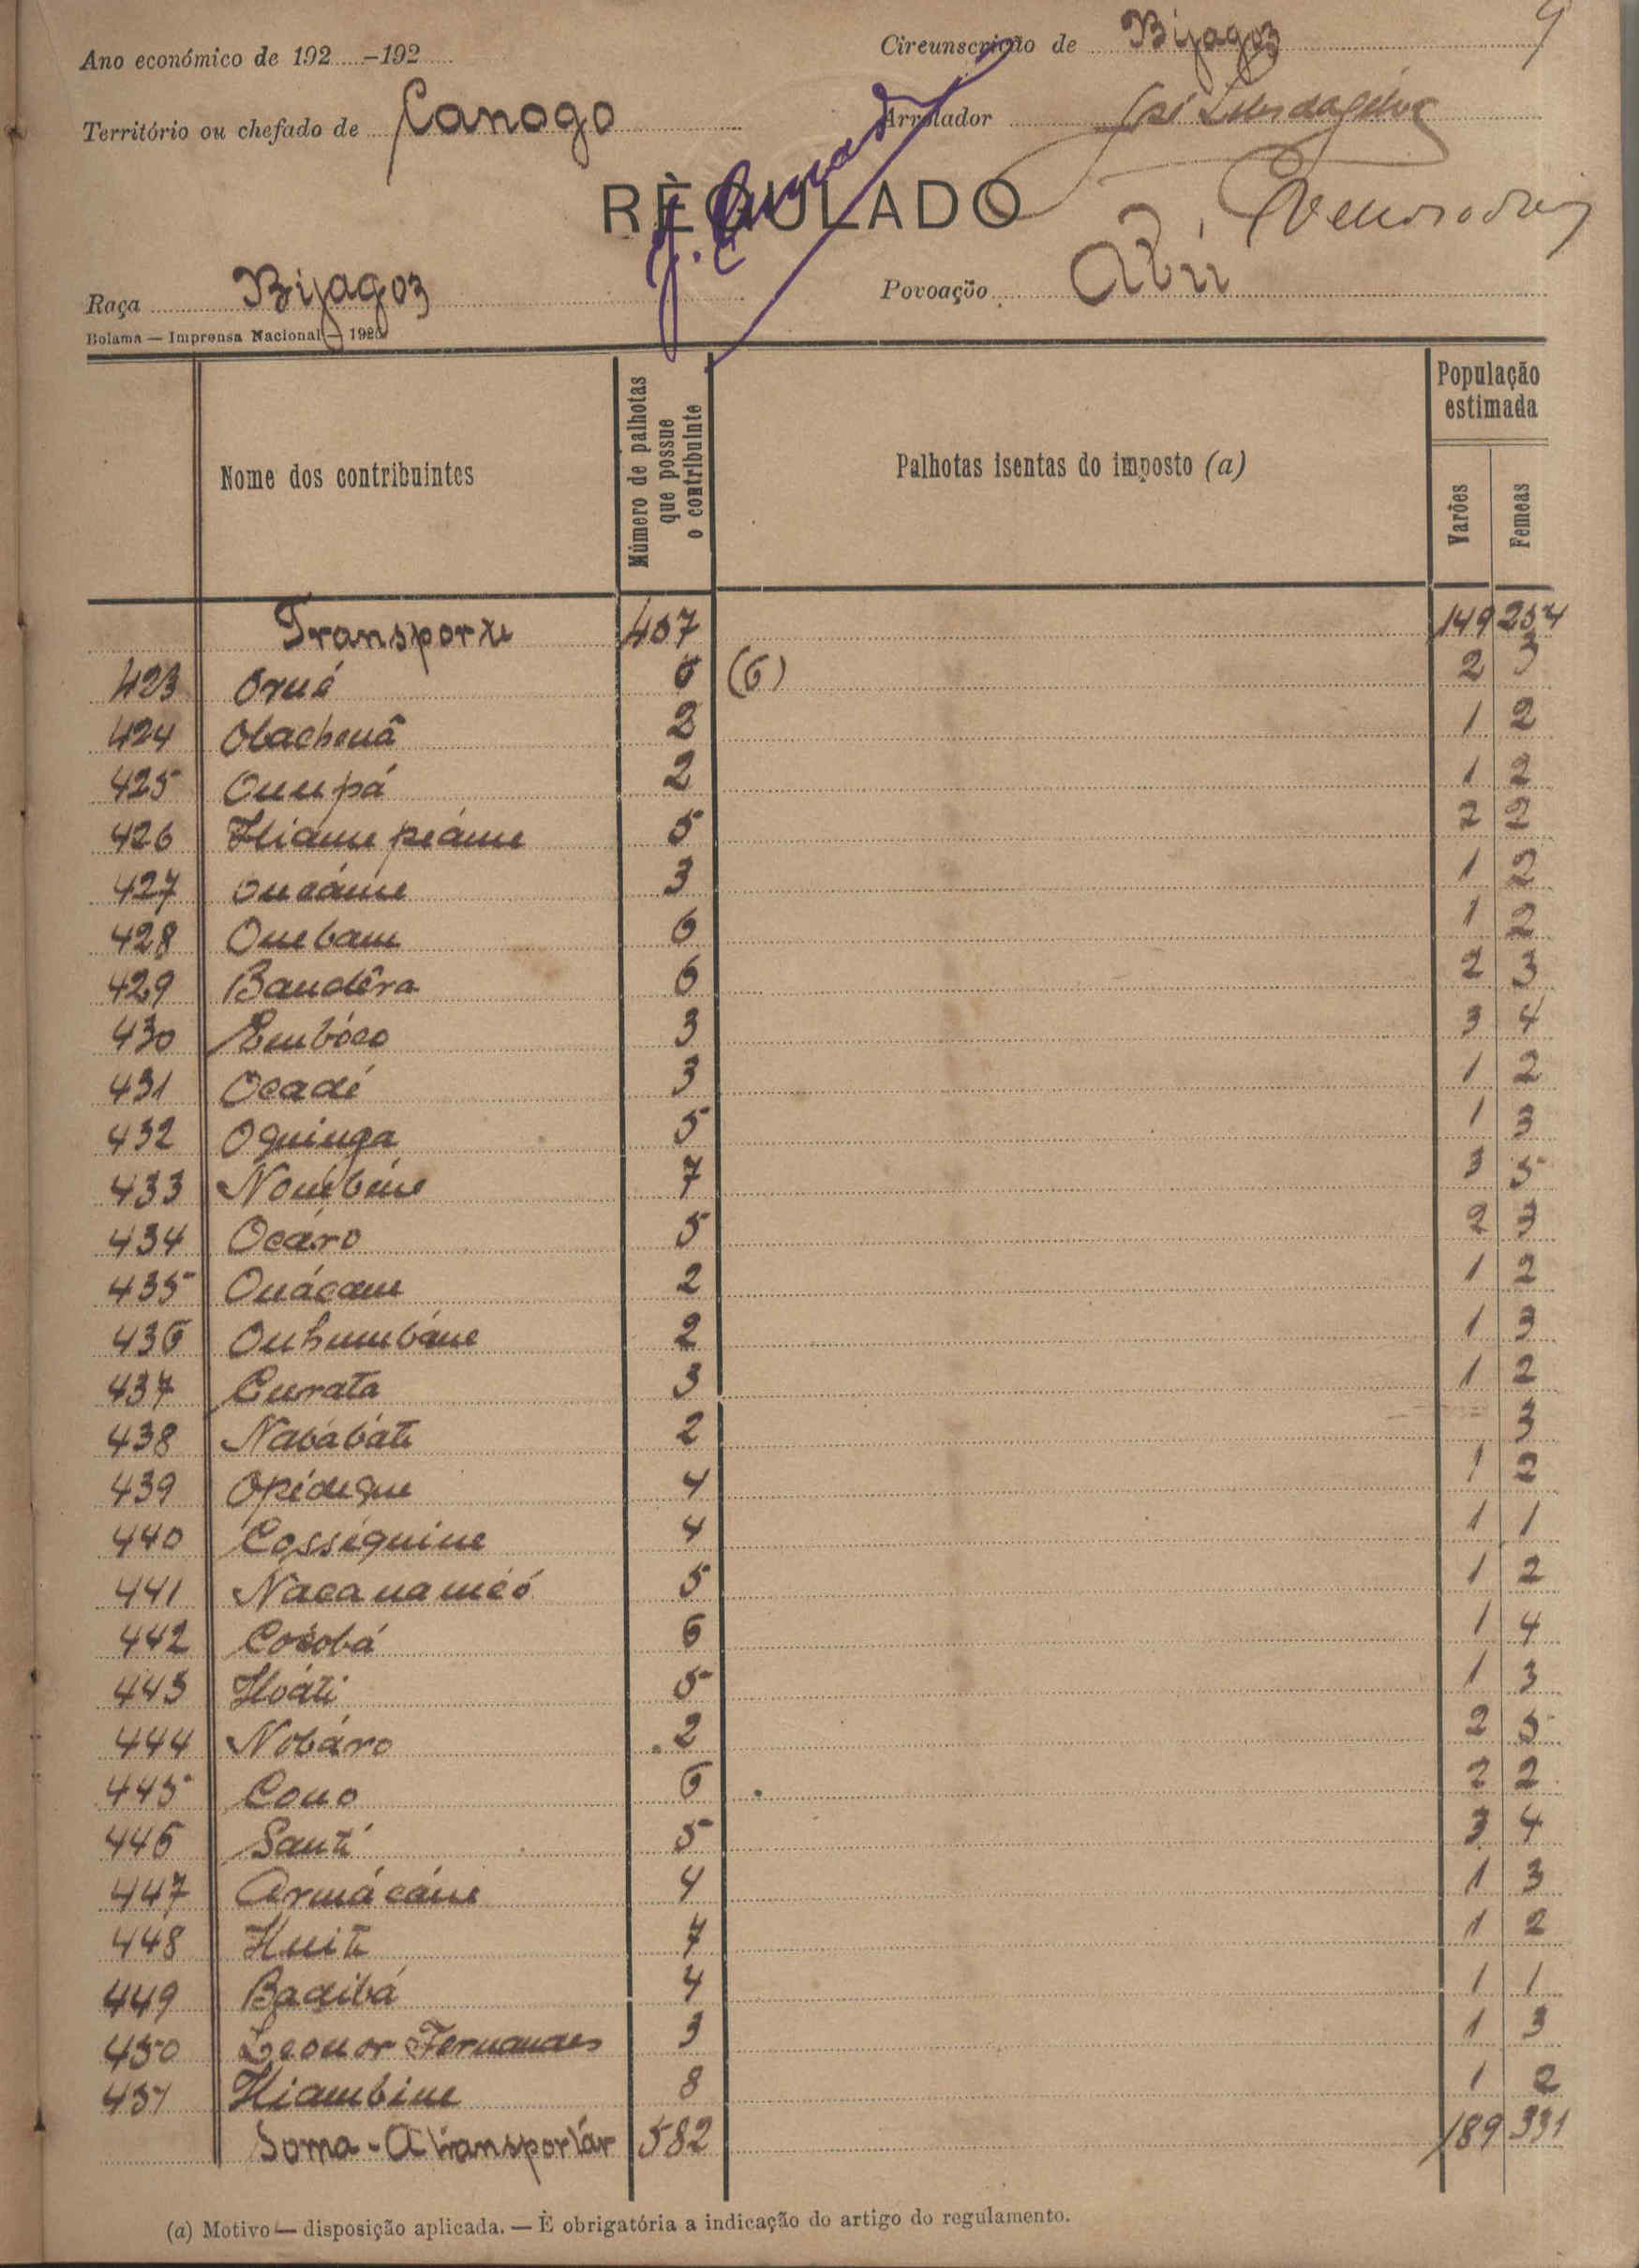 9
Ano económico de 192.....-192.....
Circunscrição de Bijagoz
Território ou chefado de Canogo
Arrolador José da Silva
RÈGULADO
Raça Bijagoz
Povoação Abú
Bolama — Imprensa Nacional — 192
Nome dos contribuintes
Número de palhotas que possue o contribuinte
Palhotas isentas do imposto (a)
População estimada
Varões
Femeas
Transporte 407 149 254
423 Oruá 6 (6) 2 3
424 Obachouâ 2 1 2
425 Ounpá 2 1 2
426 Hiámepeáme 5 2 2
427 Oucáme 3 1 2
428 Ouebam 6 1 2
429 Baudêra 6 2 3
430 Embóco 3 3 4
431 Ocadé 3 1 2
432 Oguinga 5 1 3
433 7 3 5
434 Ocáro 5 2 3
435 Ouácam 2 1 2
436 Ouhumbáne 2 1 3
437 Curata 3 1 2
438 Nabábáti 2 3
439 Opideque 4 1 2
440 Cosséquine 4 1 1
441 Nacanameó 5 1 2
442 Cocobá 6 1 4
443 Hoáti 5 1 3
444 Nobáro 2 2 5
445 Couo 6 2 2
446 Santi 5 3 4
447 Armácáne 4 1 3
448 Huite 7 1 2
449 Badibá 4 1 1
450 Leonor Fernandes 3 1 3
451 Hiambine 8 1 2
Soma - A transportár 582 189 331
(a) Motivo — disposição aplicada. — È obrigatória a indicação do artigo do regulamento.